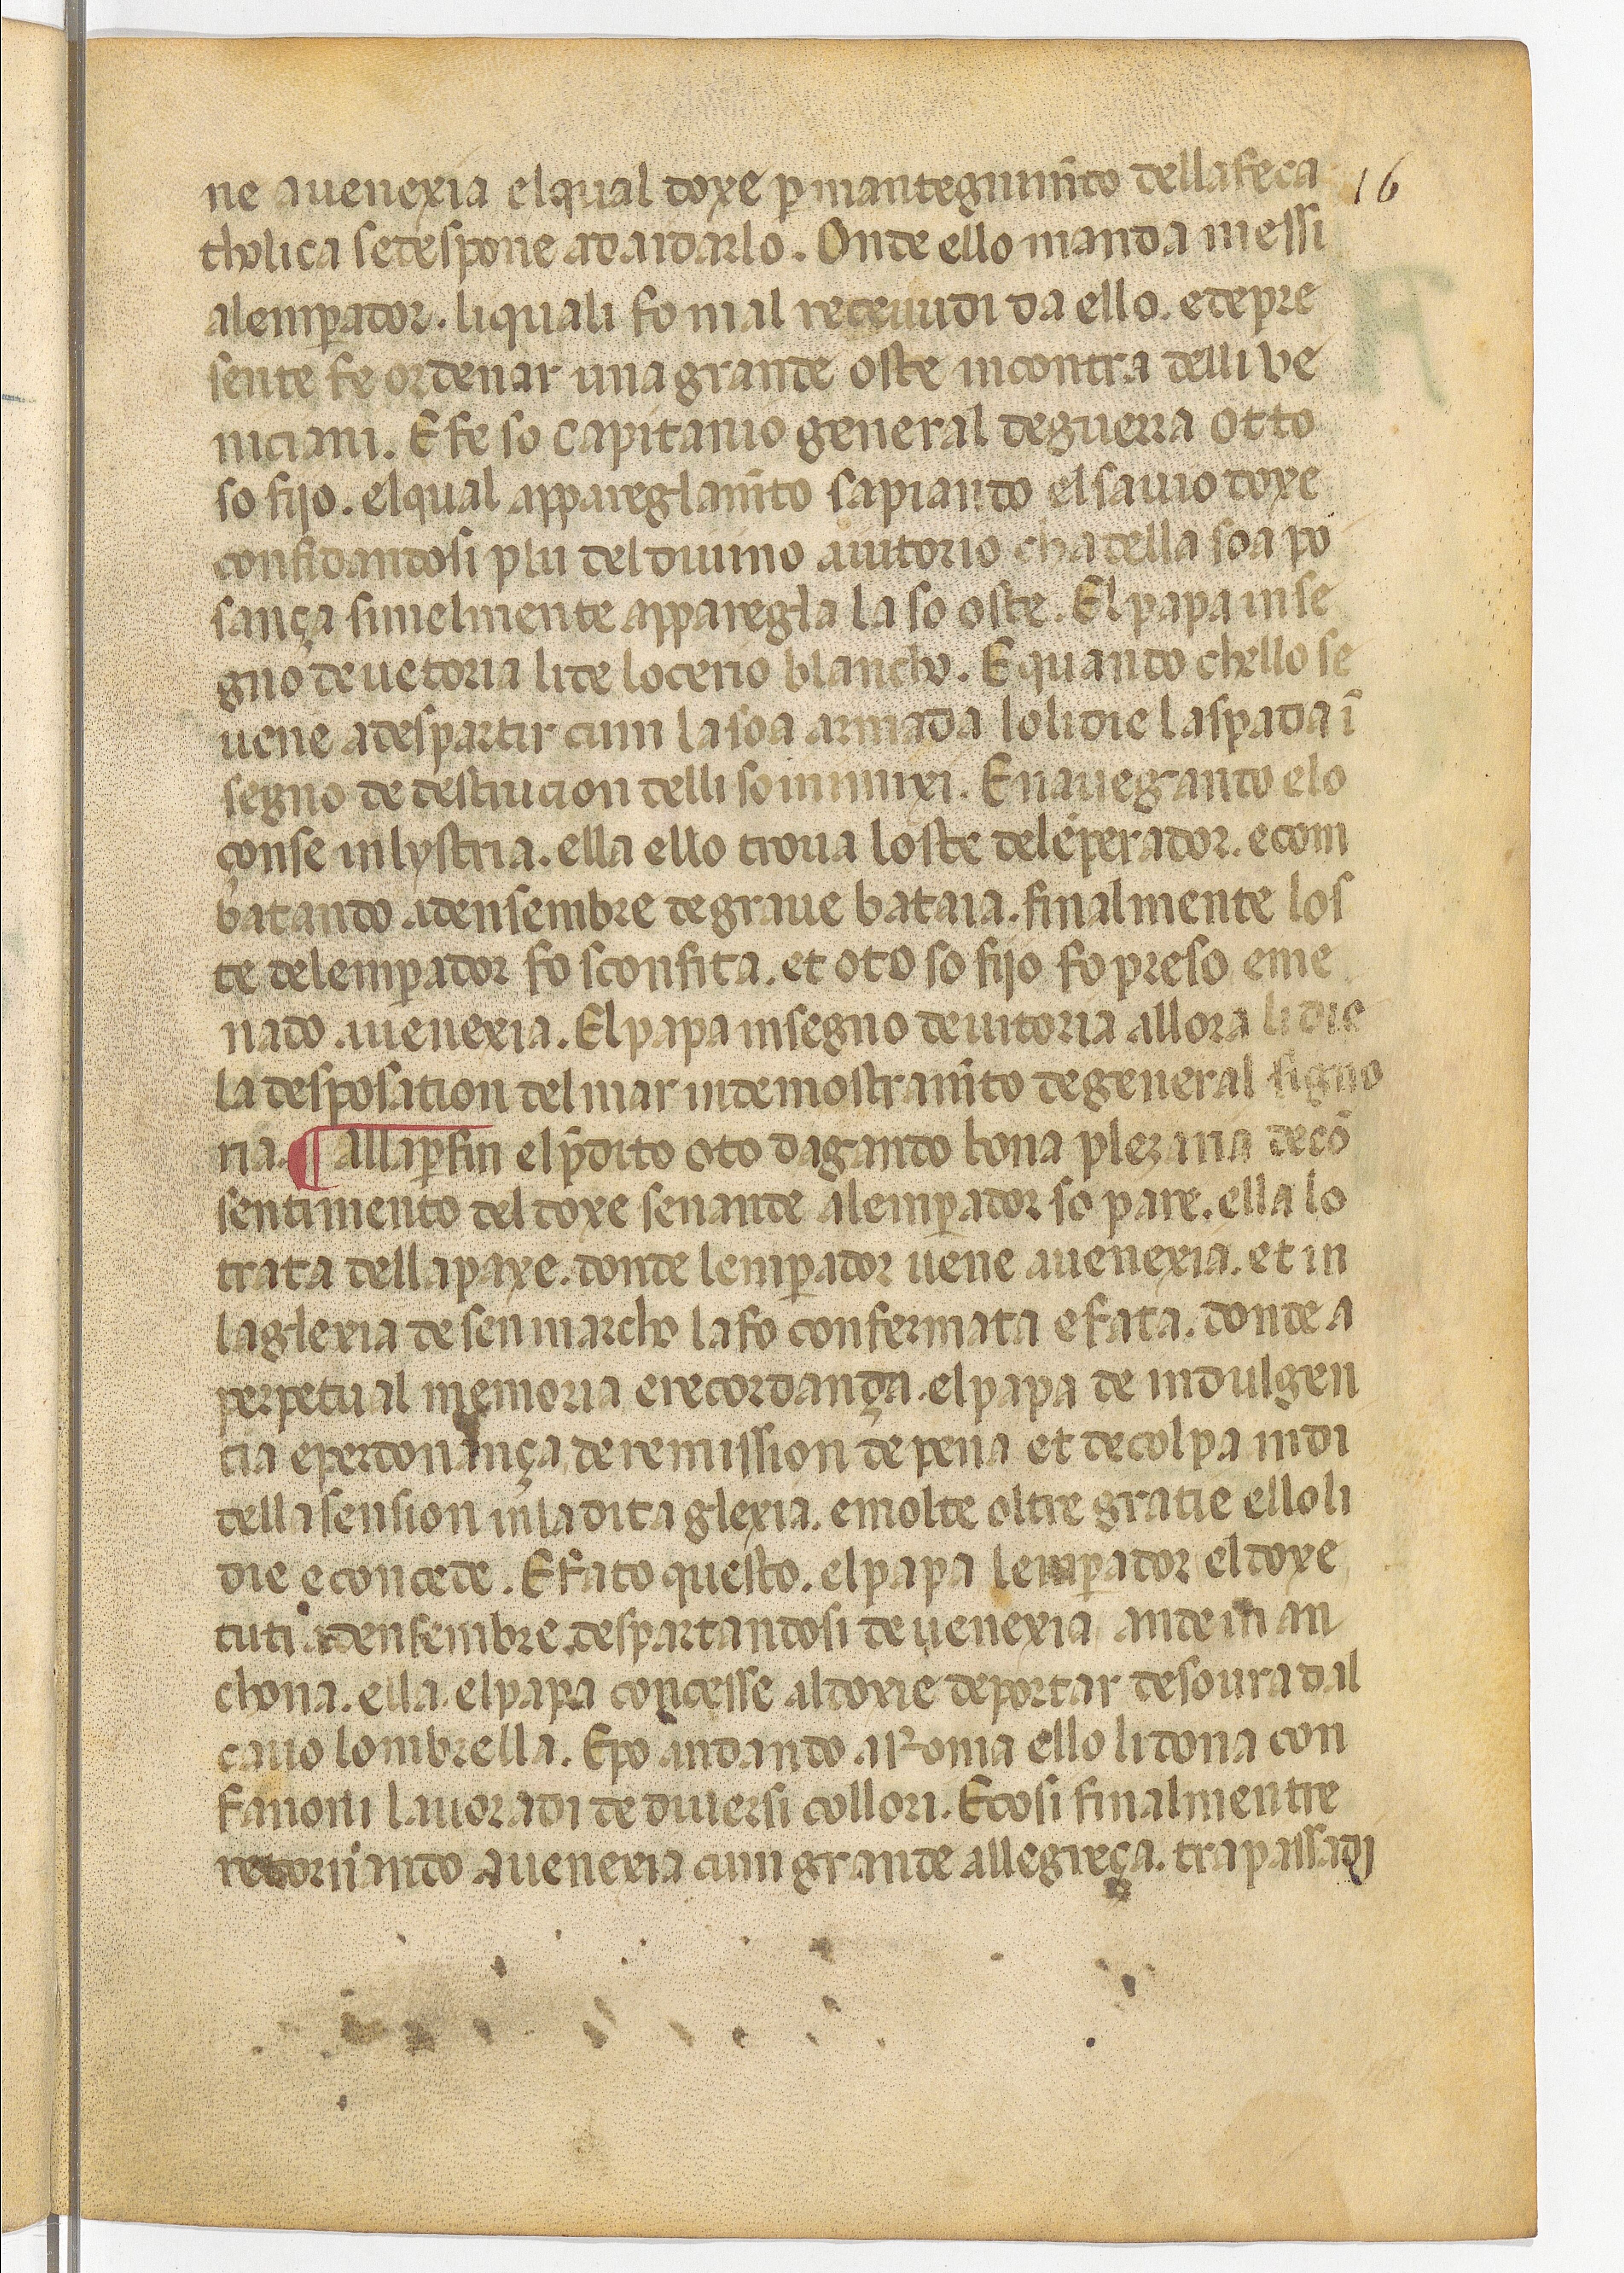 ne auenexia elqual doxe ꝑ mantegnim̄to dellafeca 16
tholica sedespone adaidarlo. Onde ello manda messi
alemꝑador. liquali fo mal receuudi da ello. edepre
sente fe ordenar una grande oste incontra delli ve
niciani. E fe so capitanio general deguerra otto
so fijo. elqual appareglam̄to sapiando elsauio doxe
confidandosi plu del diuino aiutorio cha della soa po
sança simelmente apparegla la so oste. El papa in se
gno deuetoria lide locerio blancho. E quando chello se
uene adespartir cum la soa armada lo li die la spada ī
segno de destrucion delli so inimixi. E nauegando elo
çonse inlystria. ella ello troua loste delēperador. e com
batando adensembre degraue bataia. finalmente los
te delemꝑador fo sconfita. et oto so fijo fo preso eme
nado auenexia. El papa insegno deuitoria allora li die
la desposation del mar indemostram̄to degeneral signo
ria. ¶ Allaꝑfin el p̄dito oto dagando bona plezaria decō
sentimento del doxe senande alemꝑador so pare. ella lo
trata dellapaxe. donde lemꝑador uene auenexia. et in
laglexia desen marcho lafo confermata e fata. donde a
perpetual memoria e recordança. el papa de indulgen
tia e perdonança de remission de pena et decolpa in di
dellasension inladita glexia. emolte oltre gratie ello li
die e concede. E fato questo. el papa lemꝑador el doxe
tuti adensembre despartandosi de uenexia ande in an
chona. ella el papa concesse aldoxie deportar desoura dal
cauo lombrella. Epo andando a Roma ello li dona con
fanoni lauoradi de diuersi collori. Ecosi finalmentre
retornando auenexia cum grande allegreça. trapassadi